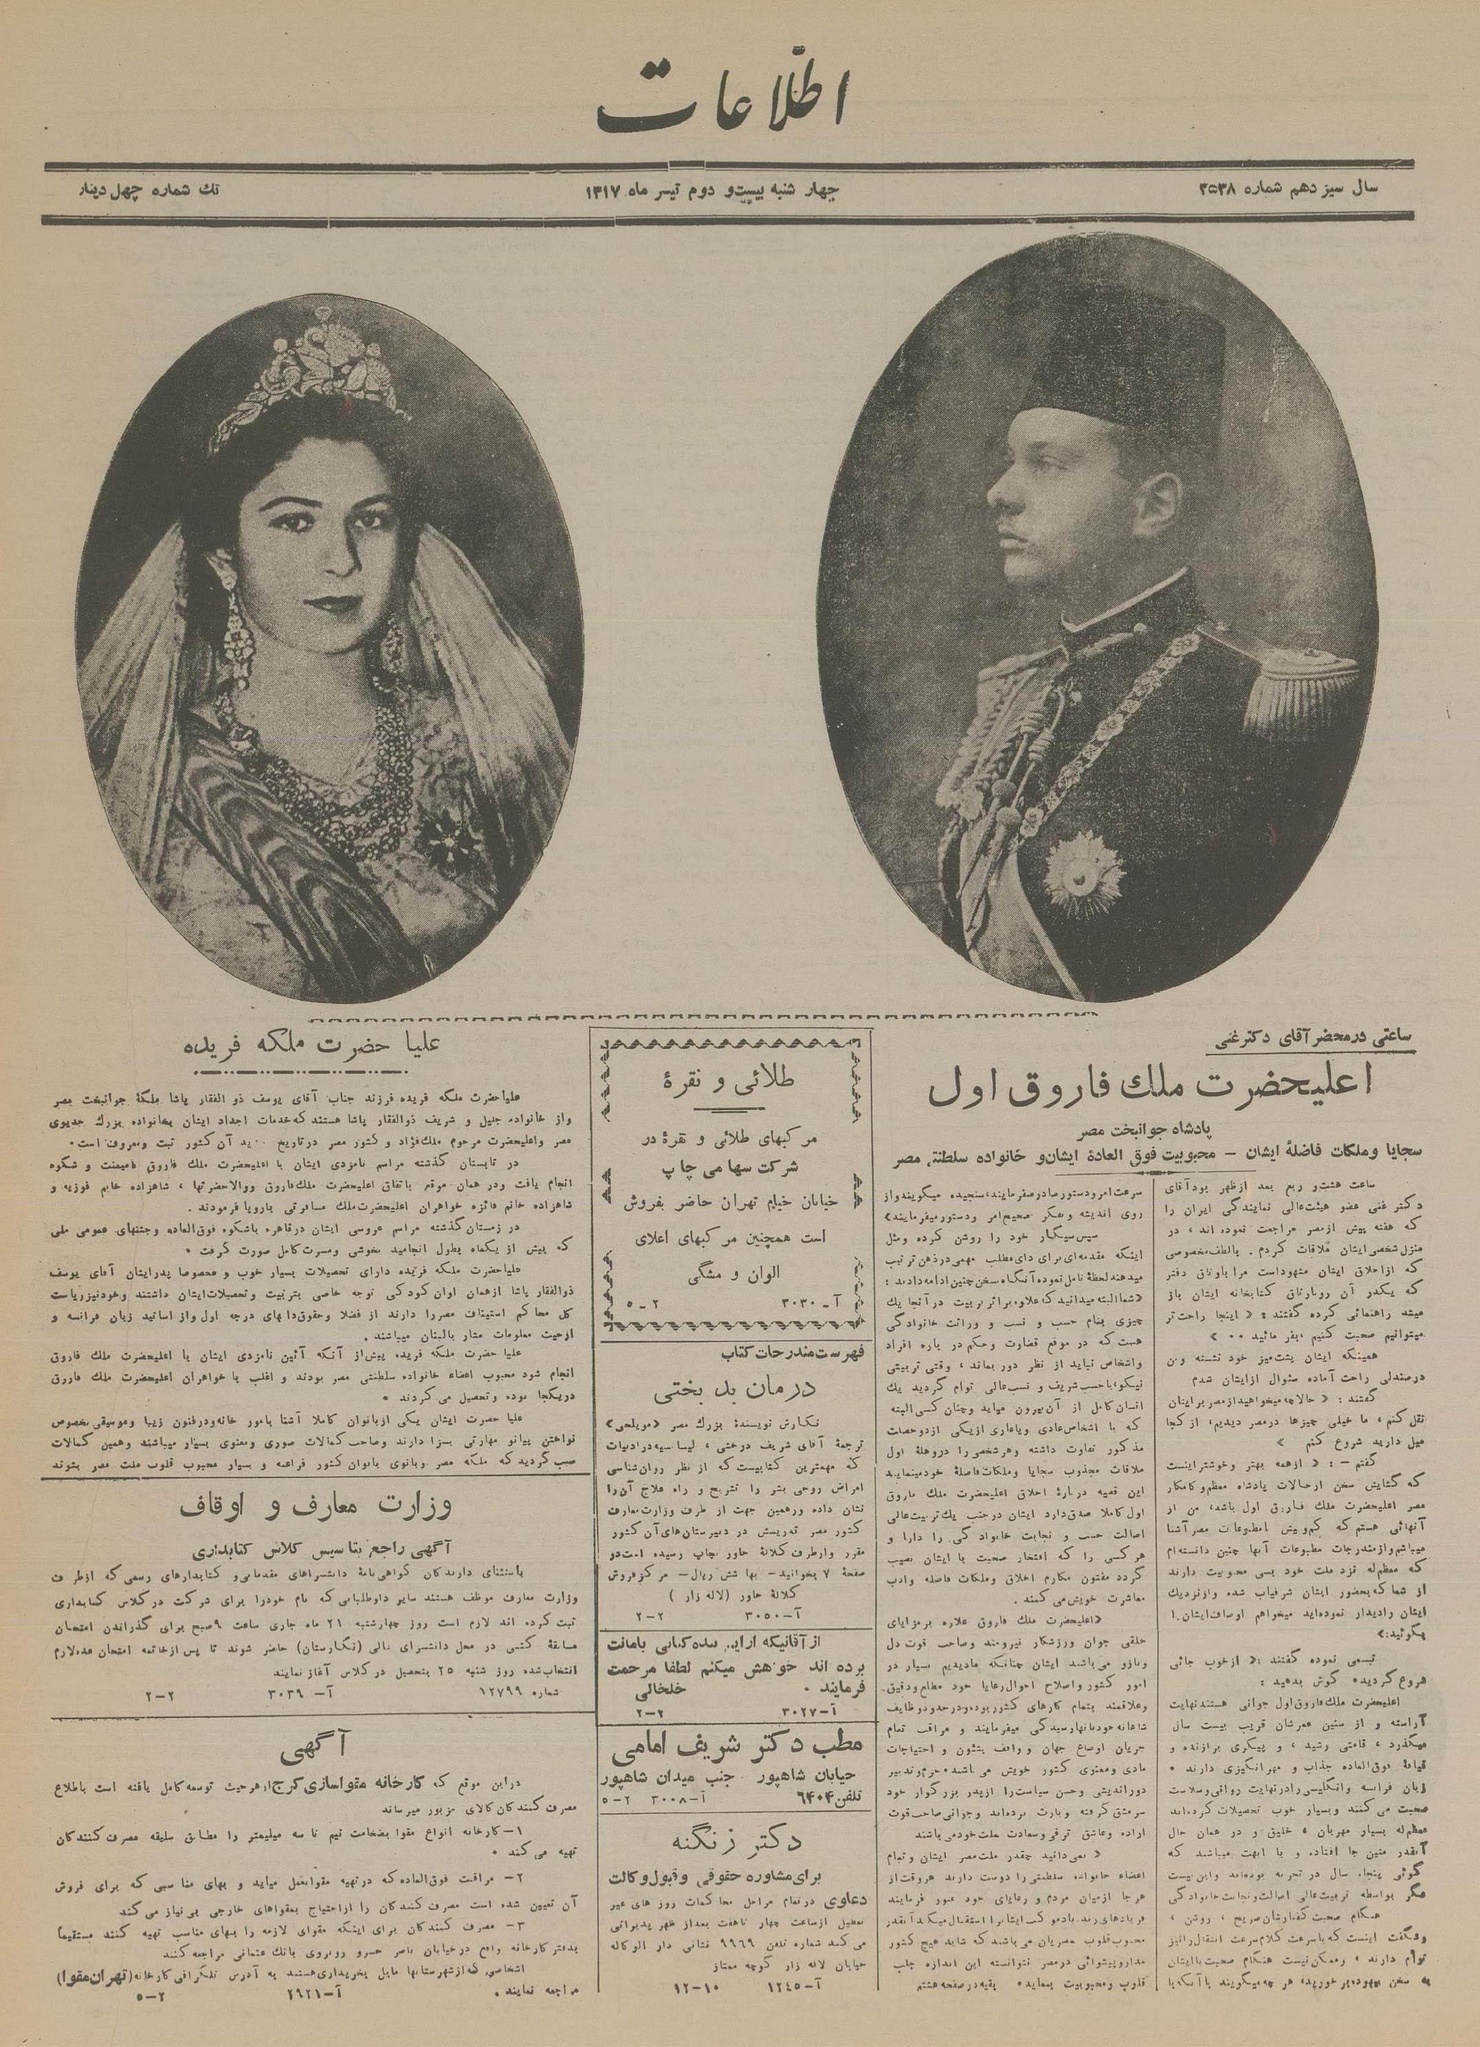 اطلاعات
سال سیزدهم شماره ۳۵۳۸
چهار شنبه بیست و دوم تیر ماه ۱۳۱۷
تك شماره چهل دینار
ساعتی در محضر آقای دکتر غنی
اعلیحضرت ملك فاروق اول
پادشاه جوانبخت مصر
سجایا و ملکات فاضلهٔ ایشان – محبوبیت فوق العادهٔ ایشان و خانواده سلطنتی مصر
ساعت هشت و ربع بعد از ظهر بود آقای
دکتر غنی عضو هیئت عالی نمایندگی ایران را
که هفته پیش از مصر مراجعت نموده اند، در
منزل شخصی ایشان ملاقات کردم. بالطف مخصوصی
که از اخلاق ایشان مشهود است مرا باوتاق دفتر
میشد راهنمائی کرده گفتند: « اینجا راحت تر
میتوانیم صحبت کنیم، بفرمائید ۰۰ »
همینکه ایشان پشت میز خود نشسته و من
در صندلی راحت آماده سئوال از ایشان شدم
گفتند: « حالا چه میخواهید از مصر برایتان
نقل کنم، ما خیلی چیزها در مصر دیدیم، از کجا
میل دارید شروع کنم »
گفتم –: « از همه بهتر و خوشتر اینست
که گشایش سخن از حالات پادشاه معظم و کامکار
مصر اعلیحضرت ملك فاروق اول باشد، من از
آنهائی هستم که کم و بیش بامطبوعات مصر آشنا
میباشم و از مندرجات مطبوعات آنها چنین دانسته ام
که معظم له نزد ملت خود بسی محبوبیت دارند
از شما که بحضور ایشان شرفیاب شده و از نزدیك
ایشان را دیدار نموده اید میخواهم اوصاف ایشان را
بگوئید:»
تبسمی نموده گفتند :« از خوب جائی
شروع کردید» گوش بدهید :
اعلیحضرت ملك فاروق اول جوانی هستند نهایت
آراسته و از سنین عمرشان قریب بیست سال
میگذرد ، قامتی رشید ، و پیکری برازنده و
قیافهٔ فوق العاده جذاب و مهر انگیزی دارند •
زبان فرانسه و انگلیسی را در نهایت روانی و سلاست
صحبت می کنند و بسیار خوب تحصیلات کرده اند
معظم له بسیار مهربان ، خلیق و در همان حال
آنقدر متین جا افتاده و با ابهت میباشند که
گوئی پنجاه سال در تجربه بوده اند و این نیست
مگر بواسطه تربیت عالی اصالت و نجابت خانوادگی
هنگام صحبت گفتارشان صریح ، روشن ،
و شگفت اینست که با سرعت کلام سرعت انتقال را نیز
توأم دارند ، و ممکن نیست هنگام صحبت با ایشان
به سخن بیهوده برخورید، هر چه میگویند با آنکه با
سرعت امر و دستور صادر میفرمایند، سنجیده میگویند و از
روی اندیشه و فکر صحیح امر و دستور میفرمایند»
سپس سیگار خود را روشن کرده و مثل
اینکه مقدمه ای برای ادای مطلب مهمی در ذهن ترتیب
میدهند لحظهٔ تامل نموده آنگاه سخن چنین ادامه دادند :
«شما البته میدانید که علاوه بر اثر تربیت در آنجا یك
چیزی بنام حسب و نسب و وراثت خانوادگی
هست که در موقع قضاوت و حکم در باره افراد
و اشخاص نباید از نظر دور بماند ، وقتی تربیتی
نیکو، باحسب شریف و نسب عالی توام گردید یك
انسان کامل از آن بیرون میاید و چنان کسی البته
که با اشخاص عادی و یا عاری از یکی از دو خصلت
مذکور تفاوت داشته و هر شخصی را در وهلهٔ اول
ملاقات مجذوب سجایا و ملکات فاضلهٔ خود مینماید
این قضیه در بارهٔ اخلاق اعلیحضرت ملك فاروق
اول کاملا صدق دارد ایشان در جنب یك تربیت عالی
اصالت حسب و نجابت خانوادگی را دارا و
هر کسی را که افتخار صحبت با ایشان نصیب
گردد مفتون مکارم اخلاق و ملکات فاضله و ادب
معاشرت خویش می کنند .
«اعلیحضرت ملك فاروق علاوه بر مزایای
خلقی جوان ورزشکار نیرومند و صاحب قوت دل
و بازو می باشند ایشان چنانکه مادیدیم بسیار در
امور کشور و اصلاح احوال رعایا خود مطلع و دقیق
و علاقمند بتمام کارهای کشور بوده و در حدود وظایف
شاهانه خود بانها رسیدگی میفرمایند و مراقب تمام
جریان اوضاع جهان و واقف بشئون و احتیاجات
مادی و معنوی کشور خویش می باشند» حزم و تدبیر
دوراندیشی و حسن سیاست را از پدر بزرگوار خود
سرمشق گرفته و بارث برده اند و جوانی صاحب قوت
اراده و عاشق ترقی و سعادت ملت خود می باشند
« نمی دانید چقدر ملت مصر ایشان و تمام
اعضاء خانواده سلطنتی را دوست دارند هر وقت از
هر جا از میان مردم و رعایای خود عبور فرمایند
محبوب قلوب مصریان می باشند که شاید هیچ کشور
مدار و پیشوائی در مصر نتوانسته این اندازه جلب
قلوب و محبوبیت بنماید» بقیه در صفحه هشتم
طلائی و نقرهٔ
مرکبهای طلائی و نقرهٔ در
شرکت سهامی چاپ
خیابان خیام تهران حاضر بفروش
است همچنین مرکبهای اعلای
الوان و مشگی
آ – ۳۰۳۰ ۲ – ۵
فهرست مندرجات کتاب
درمان بد بختی
نگارش نویسندهٔ بزرك مصر «مویلحی»
ترجمهٔ آقای شریف درخشی ، لیسانسیه در ادبیات
که مهمترین کتابیست که از نظر روان شناسی
امراض روحی بشر را تشریح و راه علاج آن را
نشان داده و بهمین جهت از طرف وزارت معارف
کشور مصر تدریس در دبیرستان های آن کشور
مقرر و از طرف کلالهٔ خاور بچاپ رسیده است در
صفحهٔ ۷ بخوانید – بها شش ریال – مرکز فروش
کلالهٔ خاور (لاله زار )
آ – ۳۰۵۰ ۲ – ۲
از آقانیکه از این بنده کتابی بامانت
برده اند خواهش میکنم لطفا مرحمت
فرمایند • خلخالی
آ – ۳۰۲۷ ۲ – ۲
مطب دکتر شریف امامی
خیابان شاهپور جنب میدان شاهپور
تلفن ۶۴۰۴ آ – ۳۰۰۸ ۲ – ۵
دکتر زنگنه
برای مشاوره حقوقی و قبول وکالت
دعاوی در تمام مراحل محاکمات روز های غیر
تعطیل از ساعت چهار تا هفت بعد از ظهر پذیرائی
می کند شماره تلفن ۹۹۶۹ نشانی دار الوکاله
خیابان لاله زار کوچه ممتاز
آ – ۱۲۴۵ ۱۰ – ۱۲
علیا حضرت ملکه فریده
علیا حضرت ملکه فریده فرزند جناب آقای یوسف ذو الفقار پاشا ملکهٔ جوانبخت مصر
و از خانواده جلیل و شریف ذوالفقار پاشا هستند که خدمات اجداد ایشان بخانواده بزرك خدیوی
مصر و اعلیحضرت مرحوم ملك فؤاد و کشور مصر در تاریخ جدید آن کشور ثبت و معروف است•
در تابستان گذشته مراسم نامزدی ایشان با اعلیحضرت ملك فاروق بامیمنت و شکوه
انجام یافت و در همان موقع باتفاق اعلیحضرت ملك فاروق و والاحضرتها ، شاهزاده خانم فوزیه و
شاهزاده خانم فائزه خواهران اعلیحضرت ملك مسافرتی باروپا فرمودند .
در زمستان گذشته مراسم عروسی ایشان در قاهره باشکوه فوق العاده و جشنهای عمومی ملی
که بیش از یکماه بطول انجامید بخوشی و مسرت کامل صورت گرفت •
علیا حضرت ملکه فریده دارای تحصیلات بسیار خوب و مخصوصا پدر ایشان آقای یوسف
ذوالفقار پاشا از همان اوان کودکی توجه خاصی بتربیت و تحصیلات ایشان داشتند و خود نیز ریاست
کل محاکم استیناف مصر را دارند از فضلا و حقوق دانهای درجه اول و از اساتید زبان فرانسه و
از حیث معلومات ممتاز بالبنان میباشند .
علیا حضرت ملکه فریده پیش از آنکه آئین نامزدی ایشان با اعلیحضرت ملك فاروق
انجام شود محبوب اعضاء خانواده سلطنتی مصر بودند و اغلب با خواهران اعلیحضرت ملك فاروق
در یکجا بوده و تحصیل می کردند •
علیا حضرت ایشان یکی از بانوان کاملا آشنا بامور خانه و در فنون زیبا و موسیقی بخصوص
نواختن پیانو مهارتی بسزا دارند و صاحب کمالات صوری و معنوی بسیار میباشند و همین کمالات
سبب گردید که ملکه مصر و بانوی بانوان کشور فراعنه و بسیار محبوب قلوب ملت مصر بشوند
وزارت معارف و اوقاف
آگهی راجع بتاسیس کلاس کتابداری
باستثنای دارندگان گواهی نامهٔ دانشسراهای مقدماتی و کتابدارهای رسمی که از طرف
وزارت معارف موظف هستند سایر داوطلبانی که نام خود را برای شرکت در کلاس کتابداری
ثبت کرده اند لازم است روز چهارشنبه ۲۱ ماه جاری ساعت ۹ صبح برای گذراندن امتحان
مسابقهٔ کتبی در محل دانشسرای عالی (نگارستان) حاضر شوند تا پس از خاتمه امتحان عده لازم
انتخاب شده روز شنبه ۲۵ بتحصیل در کلاس آغاز نمایند
شماره ۱۲۷۹۹ آ – ۳۰۳۹ ۲ – ۲
آگهی
در این موقع که کارخانه مقواسازی کرج از هر حیث توسعه کامل یافته است باطلاع
مصرف کنندگان کالای مزبور میرساند
۱ – کارخانه انواع مقوا بضخامت نیم تا سه میلیمتر را مطابق سلیقه مصرف کنندگان
تهیه می کند •
۲ – مراقبت فوق العاده که در تهیه مقوا بعمل میاید و بهای مناسبی که برای فروش
آن تعیین شده است مصرف کنندگان را از احتیاج بمقواهای خارجی بی نیاز می کند
۳ – مصرف کنندگان برای اینکه مقوای لازمه را ببهای مناسب تهیه کنند مستقیماً
بدفتر کارخانه واقع در خیابان ناصر خسرو روبروی بانك عثمانی مراجعه کنند
اشخاصی که از شهرستانها مایل بخریداری هستند به آدرس تلگرافی کارخانه (تهران مقوا)
مراجعه نمایند . آ – ۲۹۲۱ ۲ – ۵